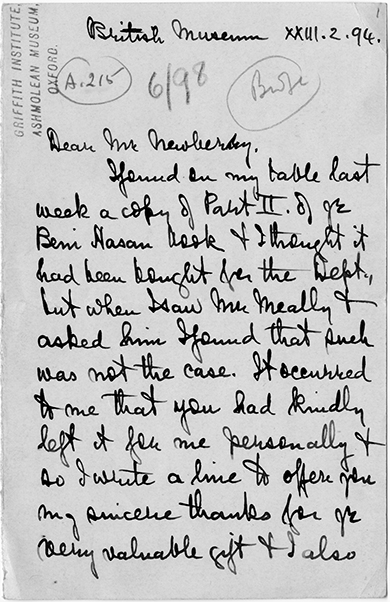 British Museum XXIII.2.94.
GRIFFITH INSTITUTE
ASHMOLEAN MUSEUM.
OXFORD.
A.215
6/98
Budge
Dear Mr Newberry,
I found on my table last
week a copy of Part II. of ye
Beni Hasan book & I thought it
had been bought for the Dept.,
but when I saw Mr Meally &
asked him I found that such
was not the case. It occurred
to me that you had kindly
left it for me personally &
so I write a line to offer you
my sincere thanks for ye
very valuable gift & I also